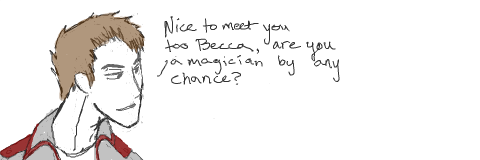 Nice to meet you
too Becca, are you
a magician by any
chance?